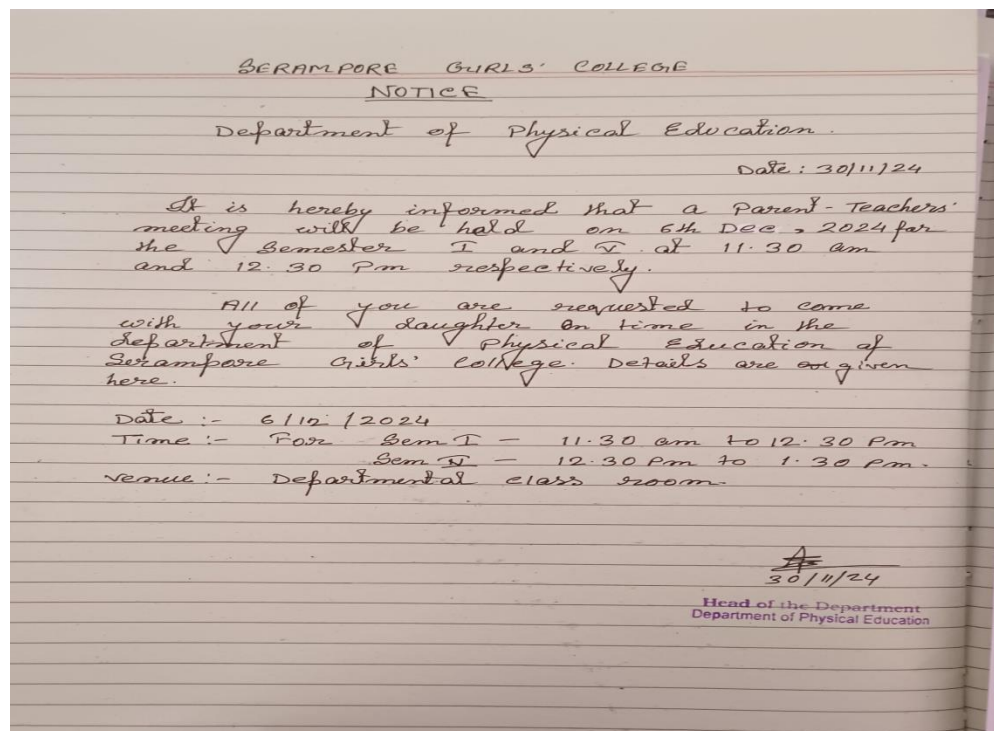 SERAMPORE GIRLS' COLLEGE
NOTICE
Department of Physical Education.
Date : 30/11/24
It is hereby informed that a Parent-Teachers'
meeting will be held on 6th Dec, 2024 for
the Semester I and V at 11.30 am
and 12.30 Pm respectively.
All of you are requested to come
with your daughter on time in the
department of Physical Education of
Serampore Girls' College. Details are given
here.
Date :- 6/12/2024
Time :- For Sem I - 11.30 am to 12.30 Pm
Sem V - 12.30 Pm to 1.30 Pm.
Venue :- Departmental class room.
30/11/24
Head of the Department
Department of Physical Education